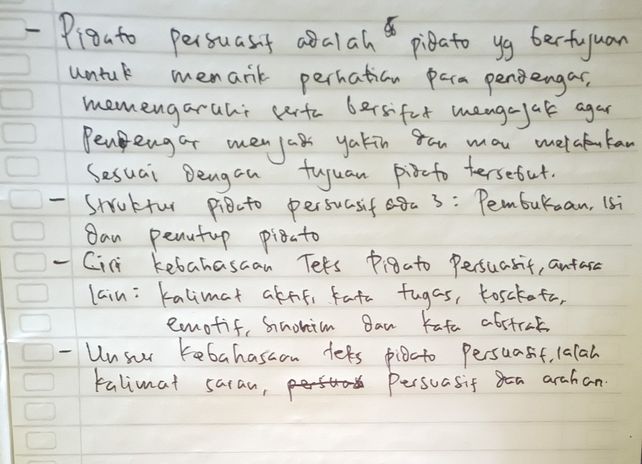 - Pidato persuasif adalah pidato yg bertujuan
untuk menarik perhatian para pendengar,
memengaruhi serta bersifat mengajak agar
Pendengar menjadi yakin dan mau melakukan
Sesuai dengan tujuan pidato tersebut.
- Struktur pidato persuasif ada 3 : Pembukaan, Isi
dan penutup pidato
- Ciri kebahasaan Teks Pidato Persuasif, antara
lain : kalimat aktif, kata tugas, kosakata,
emotif, Sinonim dan kata abstrak
- Unsur kebahasaan teks pidato persuasif, ialah
kalimat saran, persuasif dan arahan.